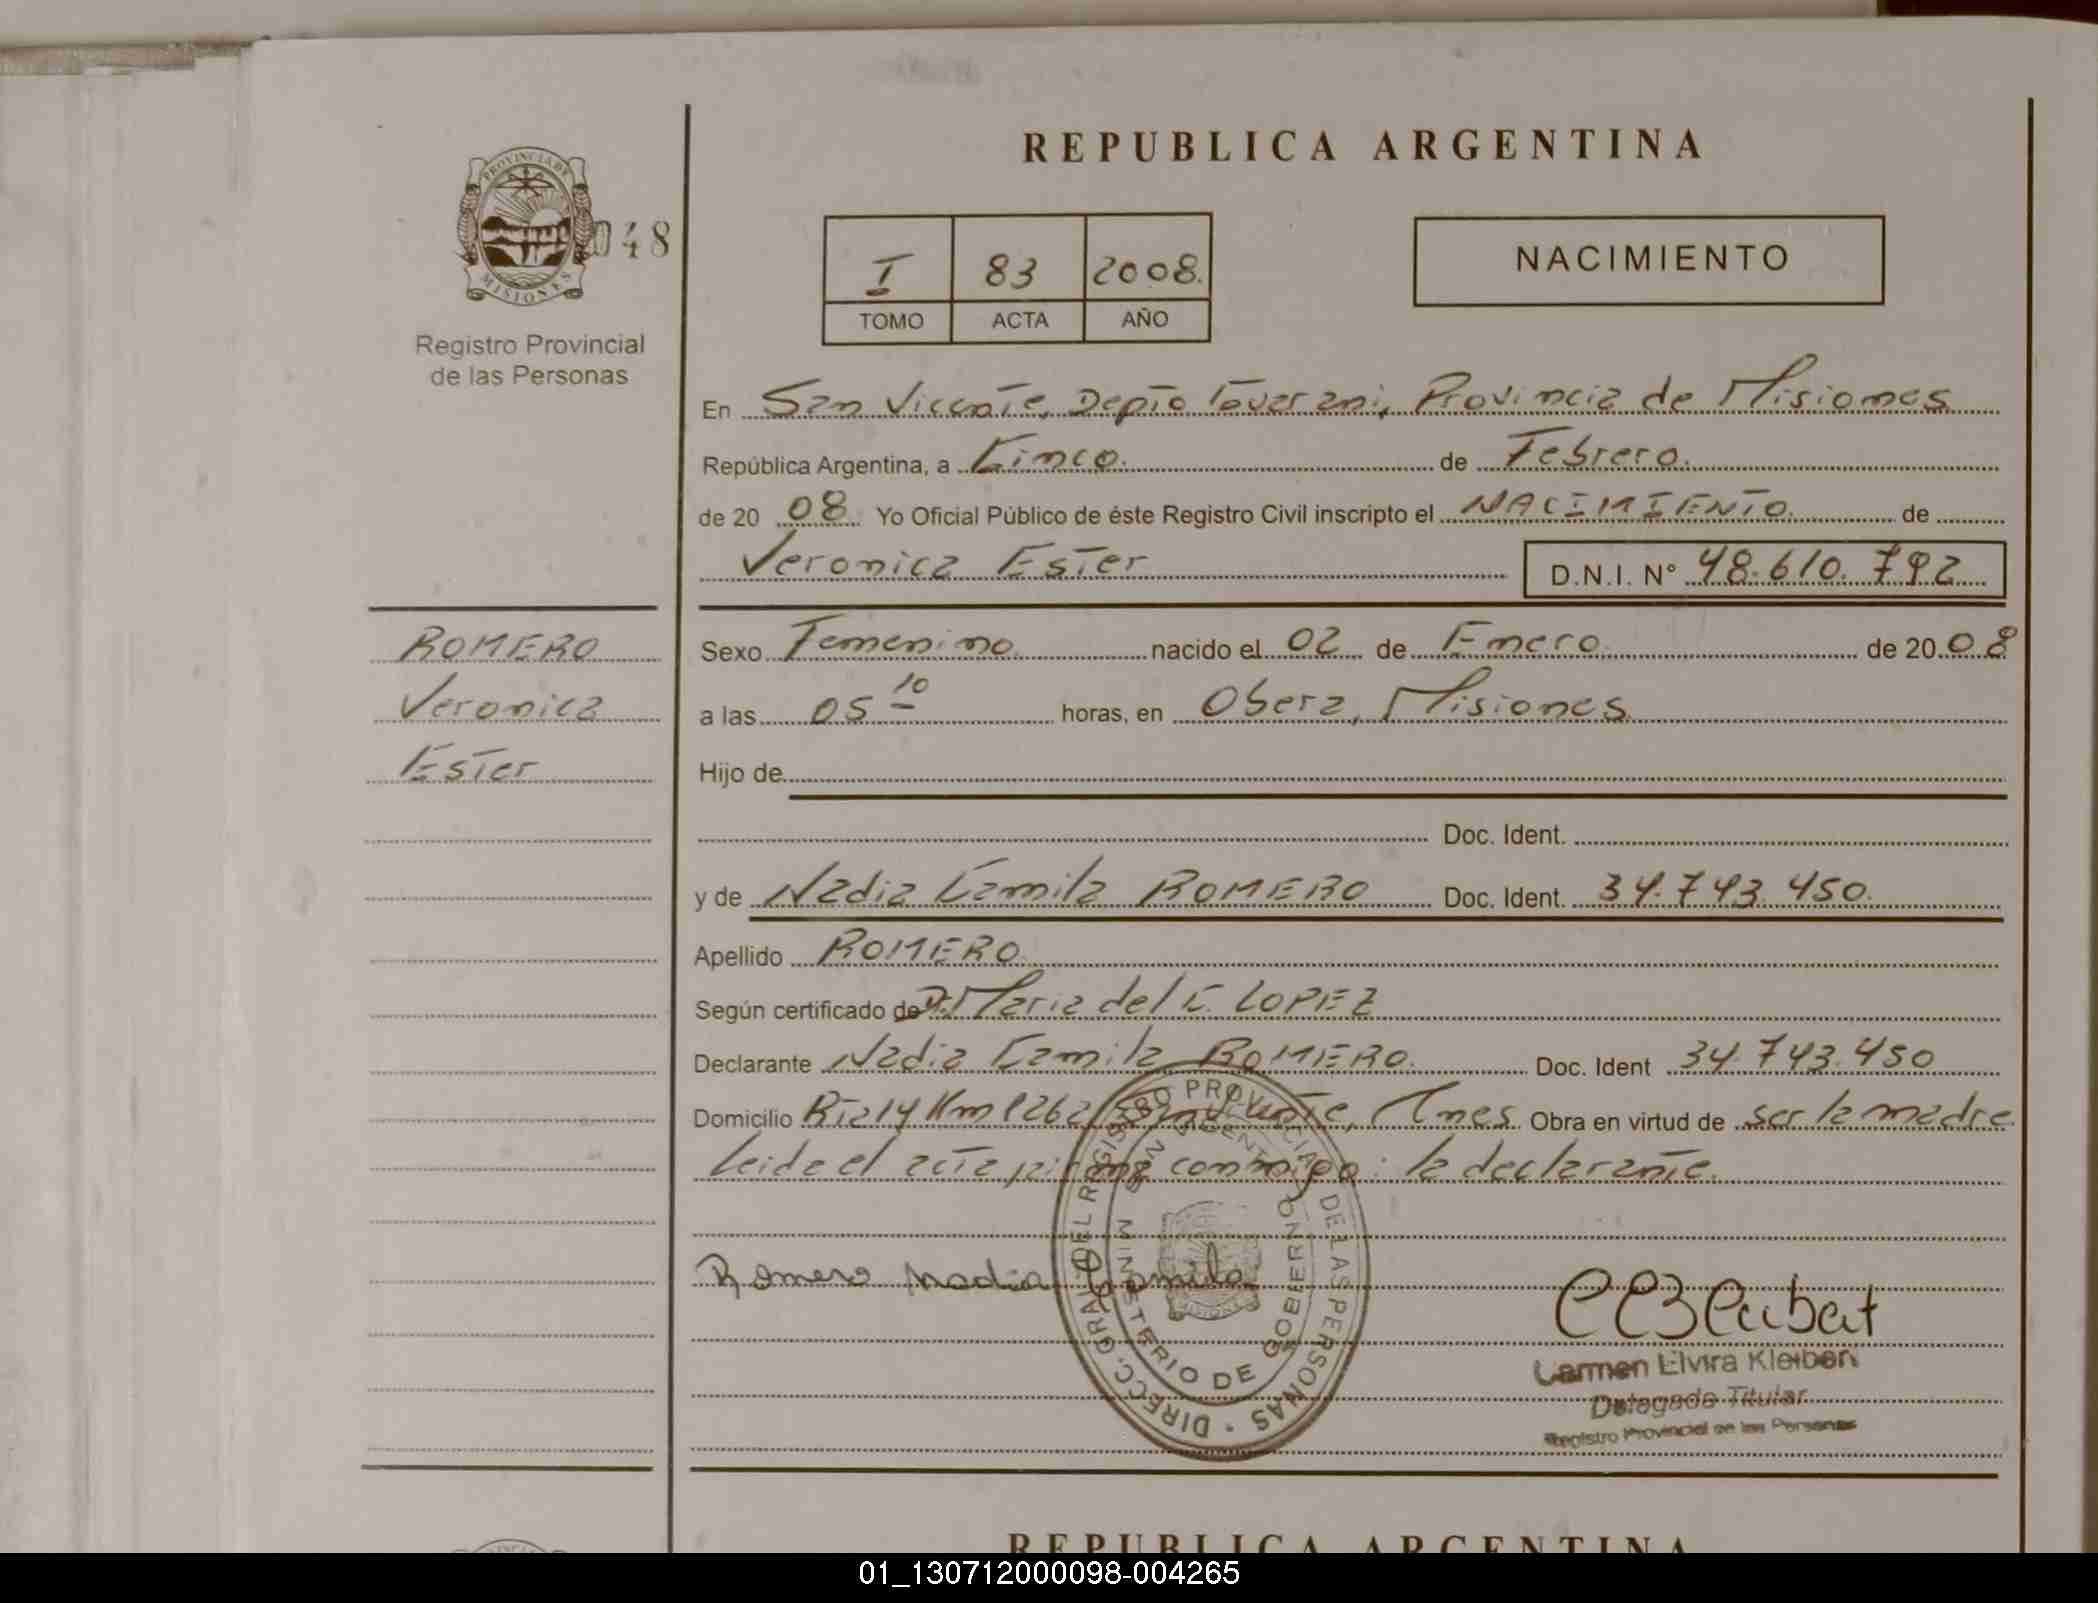 REPUBLICA ARGENTINA
PROVINCIA DE
MISIONES
048
Registro Provincial
de las Personas
I 83 2008.
TOMO ACTA AÑO
NACIMIENTO
En San Vicente, Depto Guarani, Provincia de Misiones
República Argentina, a Cinco. de Febrero.
de 20 08 Yo Oficial Público de éste Registro Civil inscripto el NACIMIENTO. de
Veronica Ester D.N.I. N° 48.610.792
ROMERO
Veronica
Ester
Sexo Femenino nacido el 02 de Enero de 20 08
a las 05 10 horas, en Obera, Misiones
Hijo de
Doc. Ident.
y de Nadia Camila ROMERO Doc. Ident. 34.743.450.
Apellido ROMERO.
Según certificado de Dr. Maria del C. LOPEZ
Declarante Nadia Camila ROMERO. Doc. Ident 34.743.450
Domicilio Rta 14 Km 1262 San Vicente, Mnes Obra en virtud de ser la madre
Leida el acta firma conmigo: la declarante.
Romero Nadia Camila
DIRECC. GRAL. DEL REGISTRO PROVINCIAL DE LAS PERSONAS
SAN VICENTE
MINISTERIO DE GOBIERNO
Carmen Elvira Kleiben
Delegada Titular
Registro Provincial de las Personas
REPUBLICA ARGENTINA
01_130712000098-004265